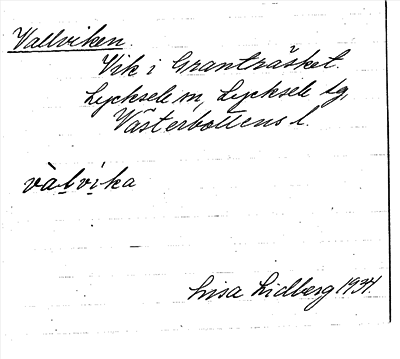 Vallviken.
Vik i Granträsket.
Lycksele sn, Lycksele tg,
Västerbottens l.
vàlvika
Lisa Lidberg 1934.